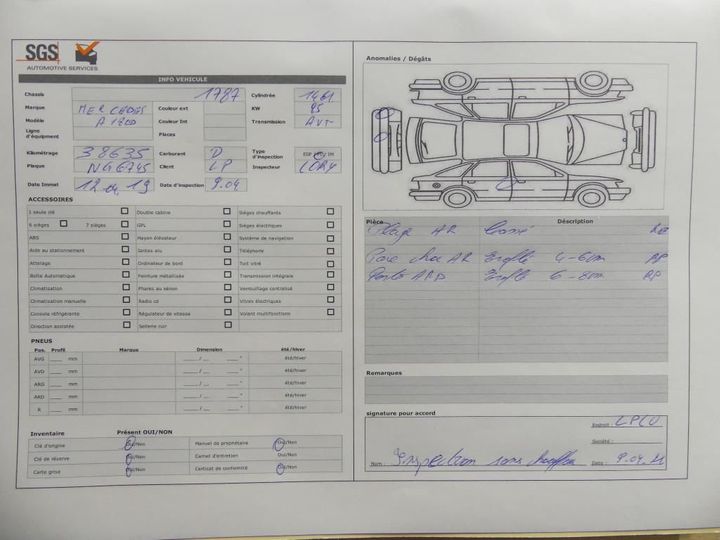 SGS
AUTOMOTIVE SERVICES
INFO VEHICULE
Chassis 1787 Cylindrée 1461
Marque MERCEDES Couleur ext KW 85
Modèle A 180D Couleur Int Transmission AUT
Ligne d'équipement Places
Kilométrage 38635 Carburant D Type d'inspection
Plaque NG6745 Client LP Inspecteur LORY
Date Immat 12 04 19 Date d'inspection 9.04
ACCESSOIRES
1 seule clé Double cabine Sièges chauffants
6 sièges 7 sièges GPL Sièges électriques
ABS Hayon élévateur Système de navigation
Aide au stationnement Jantes alu Téléphone
Attelage Ordinateur de bord Toit vitré
Boîte Automatique Peinture métallisée Transmission intégrale
Climatisation Phares au xénon Verrouillage centralisé
Climatisation manuelle Radio cd Vitres électriques
Console réfrigérante Régulateur de vitesse Volant multifonctions
Direction assistée Sellerie cuir
PNEUS
Pos. Profil Marque Dimension été/hiver
AVG mm été/hiver
AVD mm été/hiver
ARG mm été/hiver
ARD mm été/hiver
R mm été/hiver
Inventaire Présent OUI/NON
Clé d'origine Oui/Non Manuel de propriétaire Oui/Non
Clé de réserve Oui/Non Carnet d'entretien Oui/Non
Carte grise Oui/Non Certicat de conformité Oui/Non
Anomalies / Dégâts
Pièce Déscription
Plage AR Cassé
Pare choc AR Eraflé 4-6cm RP
Porte ARD Eraflé 6-8cm RP
Remarques
signature pour accord
Endroit : LPLU
Société :
Nom : Inspection sans chauffeur Date : 9.04.21